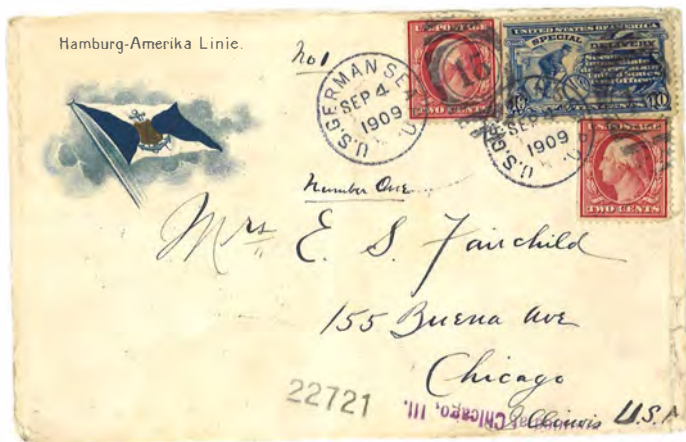 Hamburg-Amerika Linie.
No 1
U.S. POSTAGE
TWO CENTS
15
UNITED STATES OF AMERICA
SPECIAL DELIVERY
10
U.S. GERMAN SE
SEP 4
1909
U.S. GE
SEP
1909
U.S. POSTAGE
TWO CENTS
Number One
Mrs E. S. Fairchild
155 Buena Ave
Chicago
Illinois U.S.A
22721
Chicago, Ill.